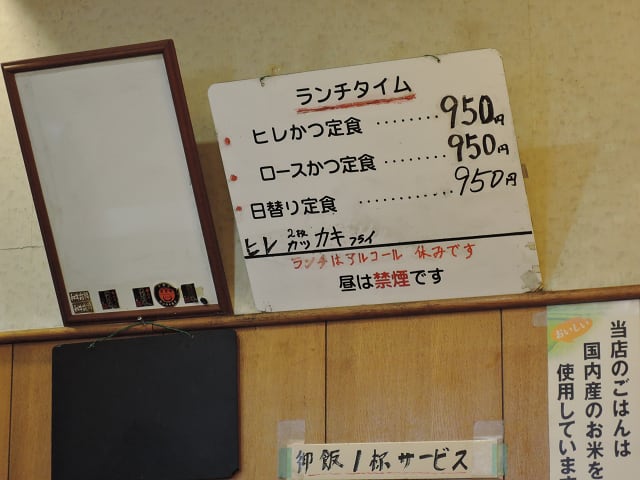 ランチタイム
ヒレかつ定食 ........ 950円
ロースかつ定食 ........ 950円
日替り定食 ............ 950円
ヒレ 2枚カツ カキフライ
ランチはアルコール 休みです
昼は禁煙です
おいしい
当店のごはんは
国内産のお米を
使用しています
御飯1杯サービス